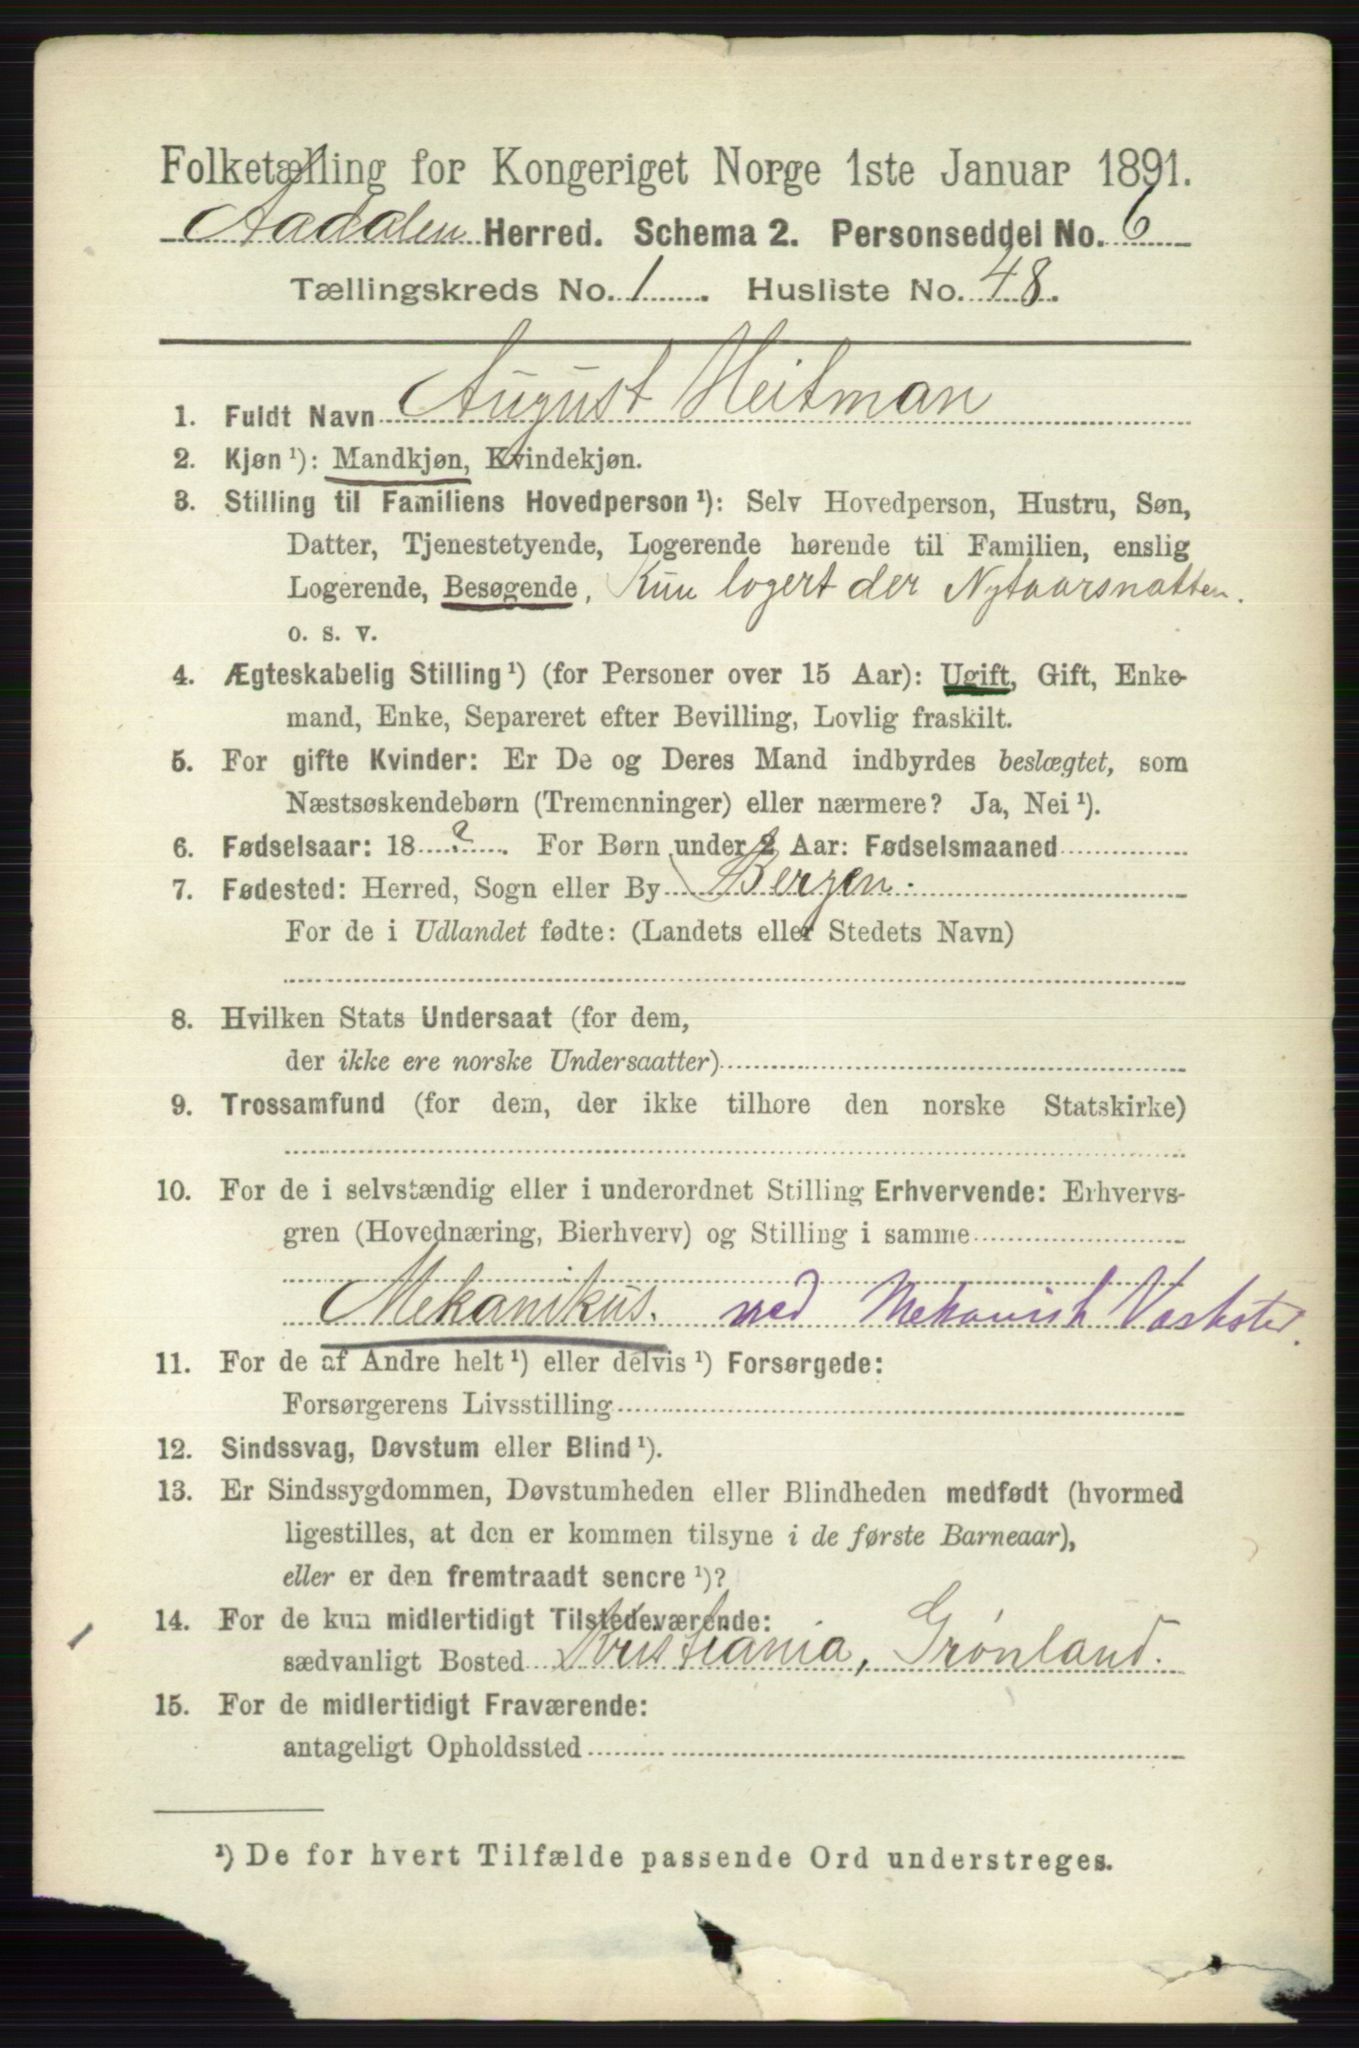 Folketælling for Kongeriget Norge 1ste Januar 1891.
Aadalen Herred. Schema 2. Personseddel No. 6
Tællingskreds No. 1. Husliste No. 48.
1. Fuldt Navn August Heitman
2. Kjøn ¹): Mandkjøn, Kvindekjøn.
3. Stilling til Familiens Hovedperson ¹): Selv Hovedperson, Hustru, Søn,
Datter, Tjenestetyende, Logerende hørende til Familien, enslig
Logerende, Besøgende, Kun logert der Nytaarsnatten.
o. s. v.
4. Ægteskabelig Stilling ¹) (for Personer over 15 Aar): Ugift, Gift, Enke-
mand, Enke, Separeret efter Bevilling, Lovlig fraskilt.
5. For gifte Kvinder: Er De og Deres Mand indbyrdes beslægtet, som
Næstsøskendebørn (Tremenninger) eller nærmere? Ja, Nei ¹).
6. Fødselsaar: 18 ?. For Børn under 2 Aar: Fødselsmaaned
7. Fødested: Herred, Sogn eller By Bergen.
For de i Udlandet fødte: (Landets eller Stedets Navn)
8. Hvilken Stats Undersaat (for dem,
der ikke ere norske Undersaatter)
9. Trossamfund (for dem, der ikke tilhøre den norske Statskirke)
10. For de i selvstændig eller i underordnet Stilling Erhvervende: Erhvervs-
gren (Hovednæring, Bierhverv) og Stilling i samme
Mekanikus. ved Mekanisk Værksted.
11. For de af Andre helt ¹) eller delvis ¹) Forsørgede:
Forsørgerens Livsstilling
12. Sindssvag, Døvstum eller Blind ¹).
13. Er Sindssygdommen, Døvstumheden eller Blindheden medfødt (hvormed
ligestilles, at den er kommen tilsyne i de første Barneaar),
eller er den fremtraadt senere ¹)?
14. For de kun midlertidigt Tilstedeværende:
sædvanligt Bosted Kristiania, Grønland.
15. For de midlertidigt Fraværende:
antageligt Opholdssted
¹) De for hvert Tilfælde passende Ord understreges.